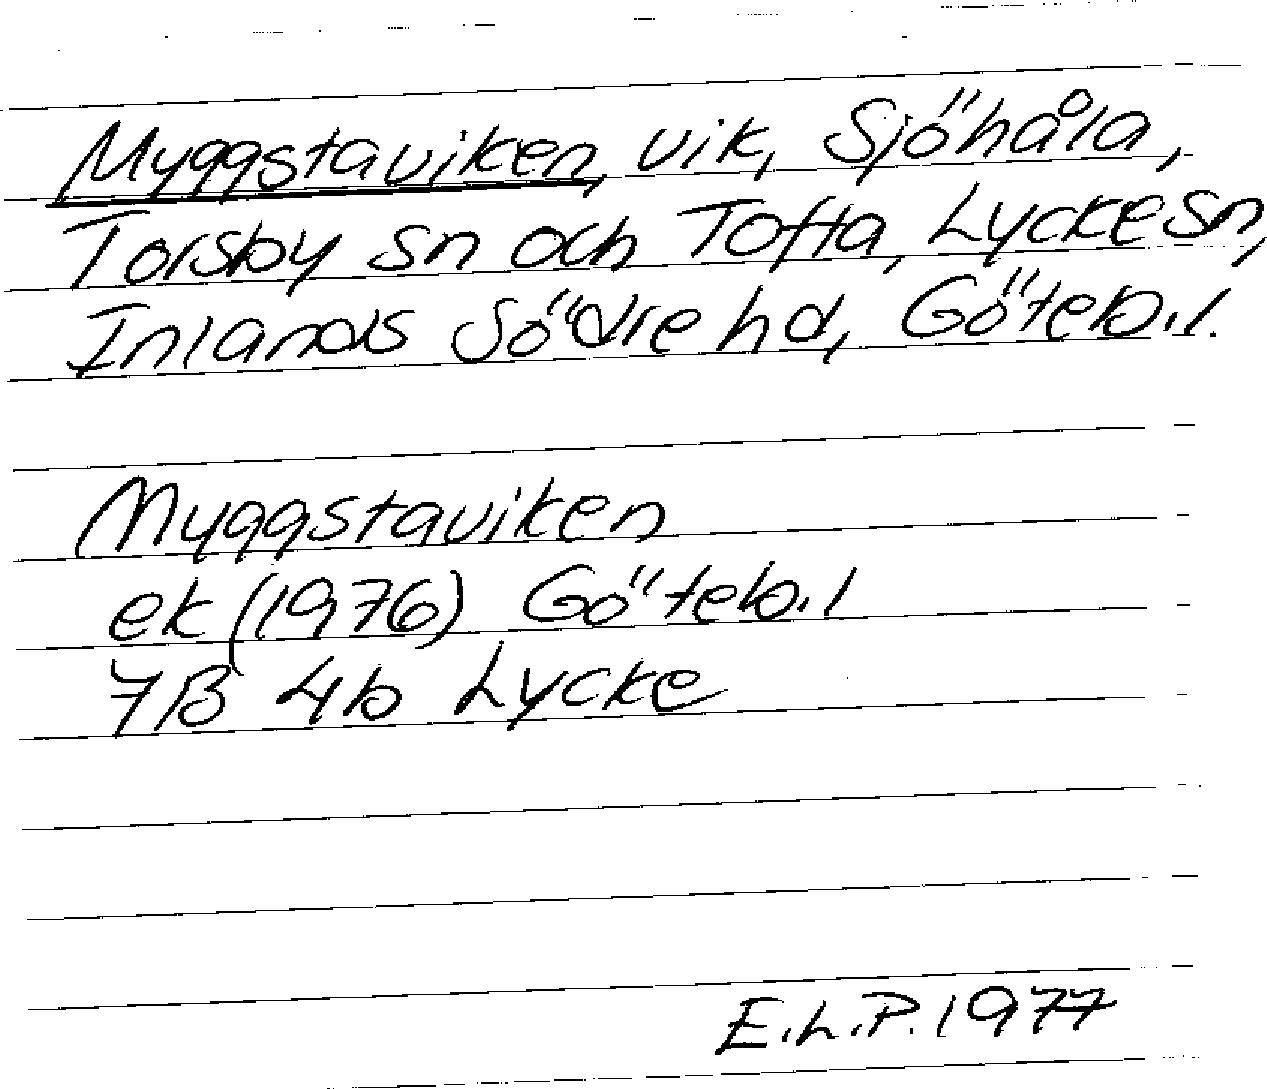 Myggstaviken, vik, Sjöhåla,
Torsby sn och Tofta, Lycke sn,
Inlands Södre hd, Göteb.l.
Myggstaviken
ek (1976) Göteb.l
7B 4b Lycke
E.L.P. 1977